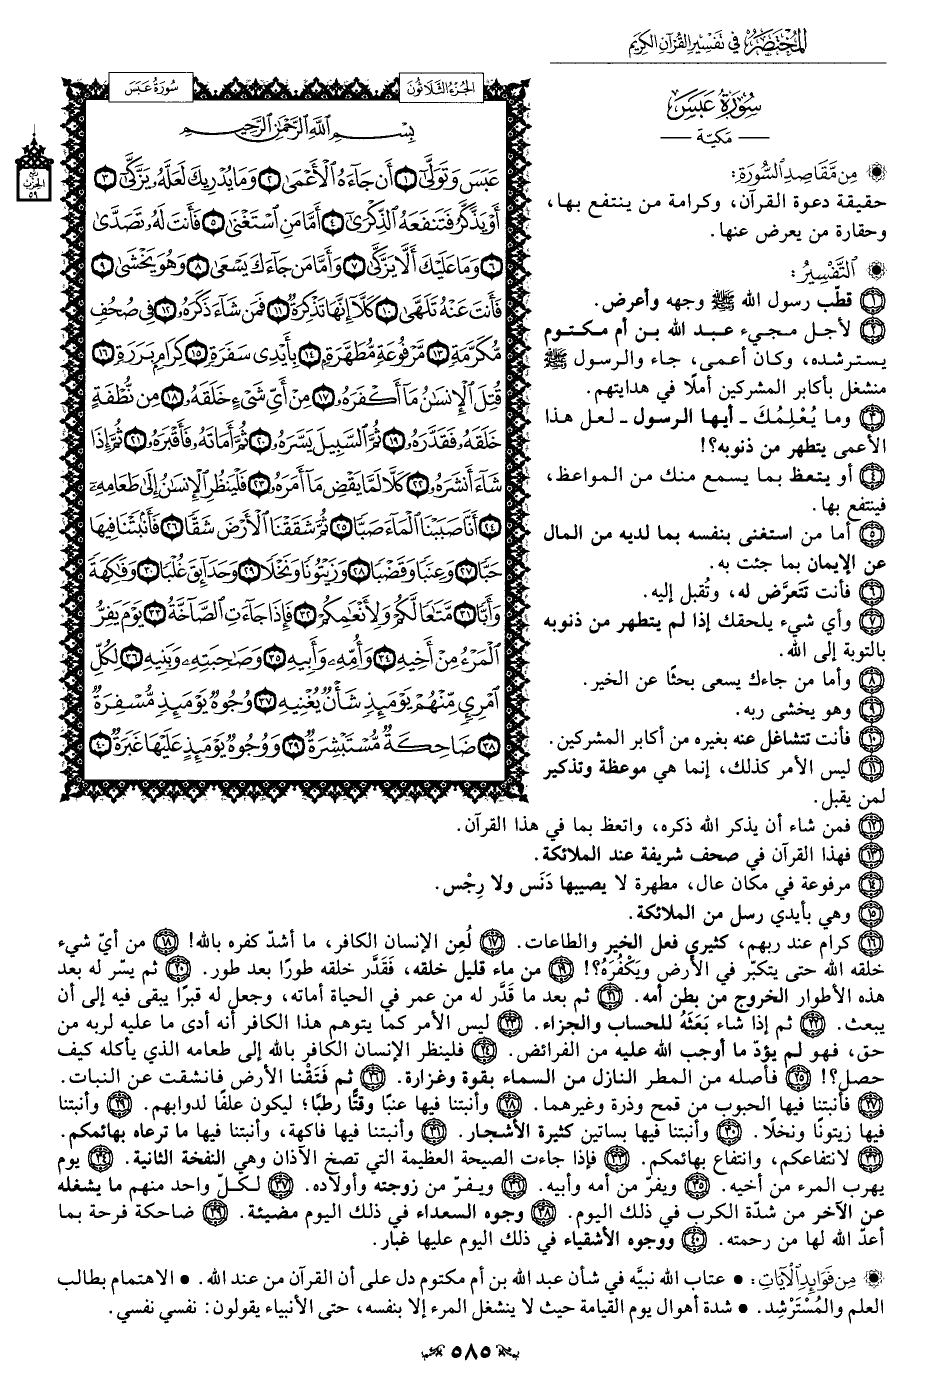 المختصر في تفسير القرآن الكريم
سورة عبس
مكية
من مقاصد السورة:
حقيقة دعوة القرآن، وكرامة من ينتفع بها،
وحقارة من يعرض عنها.
التفسير:
١ قطّب رسول الله ﷺ وجهه وأعرض.
٢ لأجل مجيء عبد الله بن أم مكتوم
يسترشده، وكان أعمى، جاء والرسول ﷺ
منشغل بأكابر المشركين أملًا في هدايتهم.
٣ وما يُعْلِمُكَ ـ أيها الرسول ـ لعل هذا
الأعمى يتطهر من ذنوبه؟!
٤ أو يتعظ بما يسمع منك من المواعظ،
فينتفع بها.
٥ أما من استغنى بنفسه بما لديه من المال
عن الإيمان بما جئت به.
٦ فأنت تَتعرَّض له، وتُقبل إليه.
٧ وأي شيء يلحقك إذا لم يتطهر من ذنوبه
بالتوبة إلى الله.
٨ وأما من جاءك يسعى بحثًا عن الخير.
٩ وهو يخشى ربه.
١٠ فأنت تتشاغل عنه بغيره من أكابر المشركين.
١١ ليس الأمر كذلك، إنما هي موعظة وتذكير
لمن يقبل.
الجزء الثلاثون
سورة عبس
ربع
الحزب
٥٩
بِسْمِ اللَّهِ الرَّحْمَٰنِ الرَّحِيمِ
عَبَسَ وَتَوَلَّىٰٓ ١ أَن جَآءَهُ ٱلْأَعْمَىٰ ٢ وَمَا يُدْرِيكَ لَعَلَّهُۥ يَزَّكَّىٰٓ ٣
أَوْ يَذَّكَّرُ فَتَنفَعَهُ ٱلذِّكْرَىٰٓ ٤ أَمَّا مَنِ ٱسْتَغْنَىٰ ٥ فَأَنتَ لَهُۥ تَصَدَّىٰ
٦ وَمَا عَلَيْكَ أَلَّا يَزَّكَّىٰ ٧ وَأَمَّا مَن جَآءَكَ يَسْعَىٰ ٨ وَهُوَ يَخْشَىٰ ٩
فَأَنتَ عَنْهُ تَلَهَّىٰ ١٠ كَلَّآ إِنَّهَا تَذْكِرَةٌ ١١ فَمَن شَآءَ ذَكَرَهُۥ ١٢ فِى صُحُفٍ
مُّكَرَّمَةٍ ١٣ مَّرْفُوعَةٍ مُّطَهَّرَةٍۭ ١٤ بِأَيْدِى سَفَرَةٍ ١٥ كِرَامٍۭ بَرَرَةٍ ١٦
قُتِلَ ٱلْإِنسَٰنُ مَآ أَكْفَرَهُۥ ١٧ مِنْ أَىِّ شَىْءٍ خَلَقَهُۥ ١٨ مِن نُّطْفَةٍ
خَلَقَهُۥ فَقَدَّرَهُۥ ١٩ ثُمَّ ٱلسَّبِيلَ يَسَّرَهُۥ ٢٠ ثُمَّ أَمَاتَهُۥ فَأَقْبَرَهُۥ ٢١ ثُمَّ إِذَا
شَآءَ أَنشَرَهُۥ ٢٢ كَلَّا لَمَّا يَقْضِ مَآ أَمَرَهُۥ ٢٣ فَلْيَنظُرِ ٱلْإِنسَٰنُ إِلَىٰ طَعَامِهِۦٓ
٢٤ أَنَّا صَبَبْنَا ٱلْمَآءَ صَبًّا ٢٥ ثُمَّ شَقَقْنَا ٱلْأَرْضَ شَقًّا ٢٦ فَأَنۢبَتْنَا فِيهَا
حَبًّا ٢٧ وَعِنَبًا وَقَضْبًا ٢٨ وَزَيْتُونًا وَنَخْلًا ٢٩ وَحَدَآئِقَ غُلْبًا ٣٠ وَفَٰكِهَةً
وَأَبًّا ٣١ مَّتَٰعًا لَّكُمْ وَلِأَنْعَٰمِكُمْ ٣٢ فَإِذَا جَآءَتِ ٱلصَّآخَّةُ ٣٣ يَوْمَ يَفِرُّ
ٱلْمَرْءُ مِنْ أَخِيهِ ٣٤ وَأُمِّهِۦ وَأَبِيهِ ٣٥ وَصَٰحِبَتِهِۦ وَبَنِيهِ ٣٦ لِكُلِّ
ٱمْرِئٍ مِّنْهُمْ يَوْمَئِذٍ شَأْنٌ يُغْنِيهِ ٣٧ وُجُوهٌ يَوْمَئِذٍ مُّسْفِرَةٌ
٣٨ ضَاحِكَةٌ مُّسْتَبْشِرَةٌ ٣٩ وَوُجُوهٌ يَوْمَئِذٍ عَلَيْهَا غَبَرَةٌ ٤٠
١٢ فمن شاء أن يذكر الله ذكره، واتعظ بما في هذا القرآن.
١٣ فهذا القرآن في صحف شريفة عند الملائكة.
١٤ مرفوعة في مكان عال، مطهرة لا يصيبها دَنَس ولا رِجْس.
١٥ وهي بأيدي رسل من الملائكة.
١٦ كرام عند ربهم، كثيري فعل الخير والطاعات. ١٧ لُعِن الإنسان الكافر، ما أشدّ كفره بالله! ١٨ من أيّ شيء
خلقه الله حتى يتكبّر في الأرض ويَكْفُرَهُ؟! ١٩ من ماء قليل خلقه، فَقَدَّر خلقه طورًا بعد طور. ٢٠ ثم يسّر له بعد
هذه الأطوار الخروج من بطن أمه. ٢١ ثم بعد ما قَدَّر له من عمر في الحياة أماته، وجعل له قبرًا يبقى فيه إلى أن
يبعث. ٢٢ ثم إذا شاء بَعَثَهُ للحساب والجزاء. ٢٣ ليس الأمر كما يتوهم هذا الكافر أنه أدى ما عليه لربه من
حق، فهو لم يؤدّ ما أوجب الله عليه من الفرائض. ٢٤ فلينظر الإنسان الكافر بالله إلى طعامه الذي يأكله كيف
حصل؟! ٢٥ فأصله من المطر النازل من السماء بقوة وغزارة. ٢٦ ثم فَتَقْنا الأرض فانشقت عن النبات.
٢٧ فأنبتنا فيها الحبوب من قمح وذرة وغيرهما. ٢٨ وأنبتنا فيها عنبًا وقتًّا رطبًا؛ ليكون علفًا لدوابهم. ٢٩ وأنبتنا
فيها زيتونًا ونخلًا. ٣٠ وأنبتنا فيها بساتين كثيرة الأشجار. ٣١ وأنبتنا فيها فاكهة، وأنبتنا فيها ما ترعاه بهائمكم.
٣٢ لانتفاعكم، وانتفاع بهائمكم. ٣٣ فإذا جاءت الصيحة العظيمة التي تصخ الآذان وهي النفخة الثانية. ٣٤ يوم
يهرب المرء من أخيه. ٣٥ ويفرّ من أمه وأبيه. ٣٦ ويفرّ من زوجته وأولاده. ٣٧ لكلّ واحد منهم ما يشغله
عن الآخر من شدّة الكرب في ذلك اليوم. ٣٨ وجوه السعداء في ذلك اليوم مضيئة. ٣٩ ضاحكة فرحة بما
أعدّ الله لها من رحمته. ٤٠ ووجوه الأشقياء في ذلك اليوم عليها غبار.
من فوائد الآيات: • عتاب الله نبيَّه في شأن عبد الله بن أم مكتوم دل على أن القرآن من عند الله. • الاهتمام بطالب
العلم والمُسْتَرْشِد. • شدة أهوال يوم القيامة حيث لا ينشغل المرء إلا بنفسه، حتى الأنبياء يقولون: نفسي نفسي.
٥٨٥